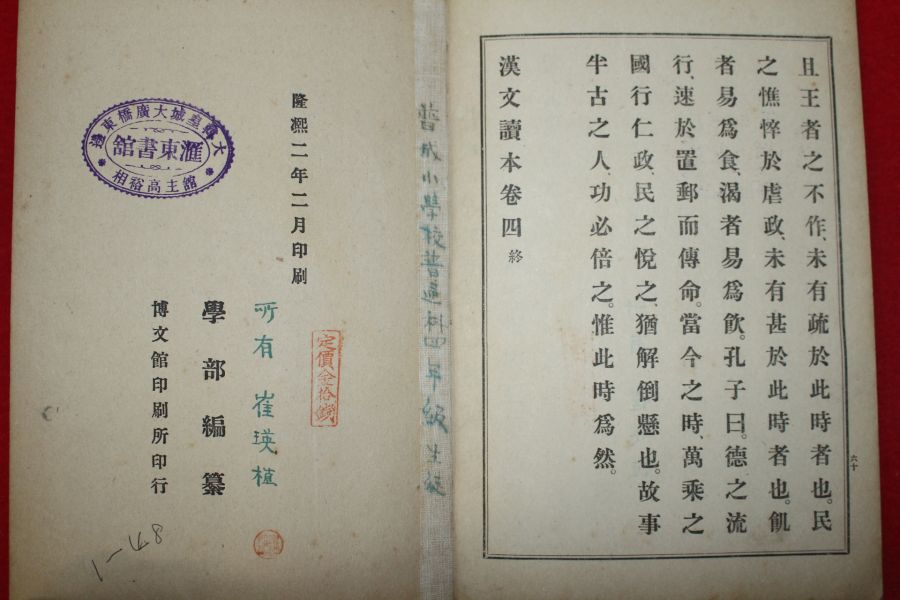 且王者之不作、未有疏於此時者也。民
之憔悴於虐政、未有甚於此時者也。飢
者易爲食、渴者易爲飮。孔子曰。德之流
行、速於置郵而傳命。當今之時、萬乘之
國行仁政、民之悅之、猶解倒懸也。故事
半古之人、功必倍之。惟此時爲然。
漢文讀本卷四 終
六十
普成小學校普通科四年級生徒
定價金拾錢
隆熙二年二月印刷
所有 崔瑛植
學部編纂
博文館印刷所印行
大韓皇城大廣橋東邊
滙東書館
館主高裕相
1-48